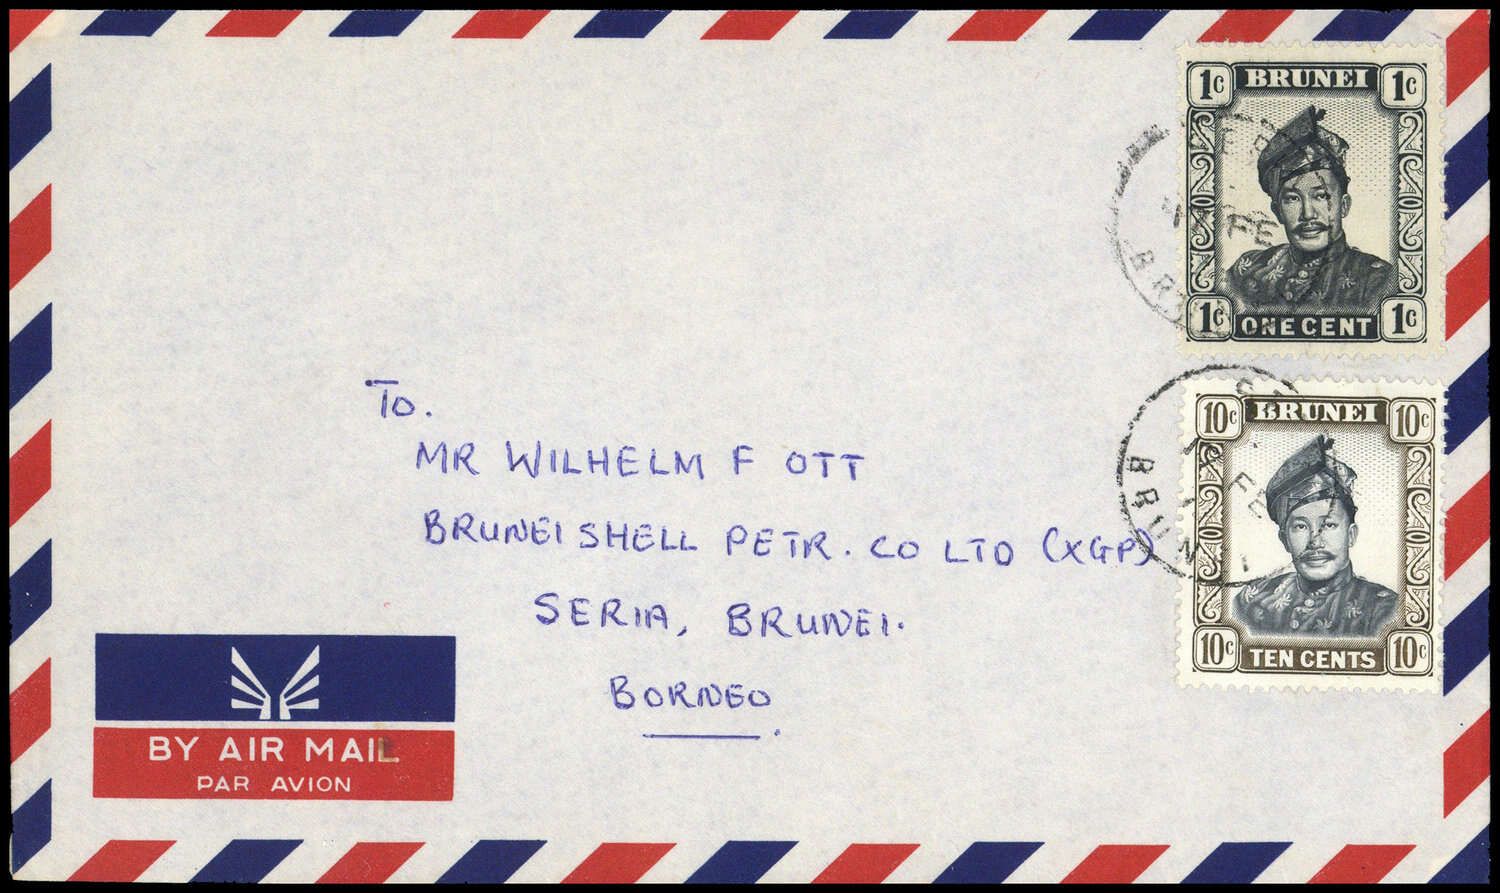 1c BRUNEI 1c
1c ONE CENT 1c
BRUNEI
10c BRUNEI 10c
10c TEN CENTS 10c
To.
MR WILHELM F OTT
BRUNEI SHELL PETR. CO LTD (XGP)
SERIA, BRUNEI.
BORNEO
BY AIR MAIL
PAR AVION